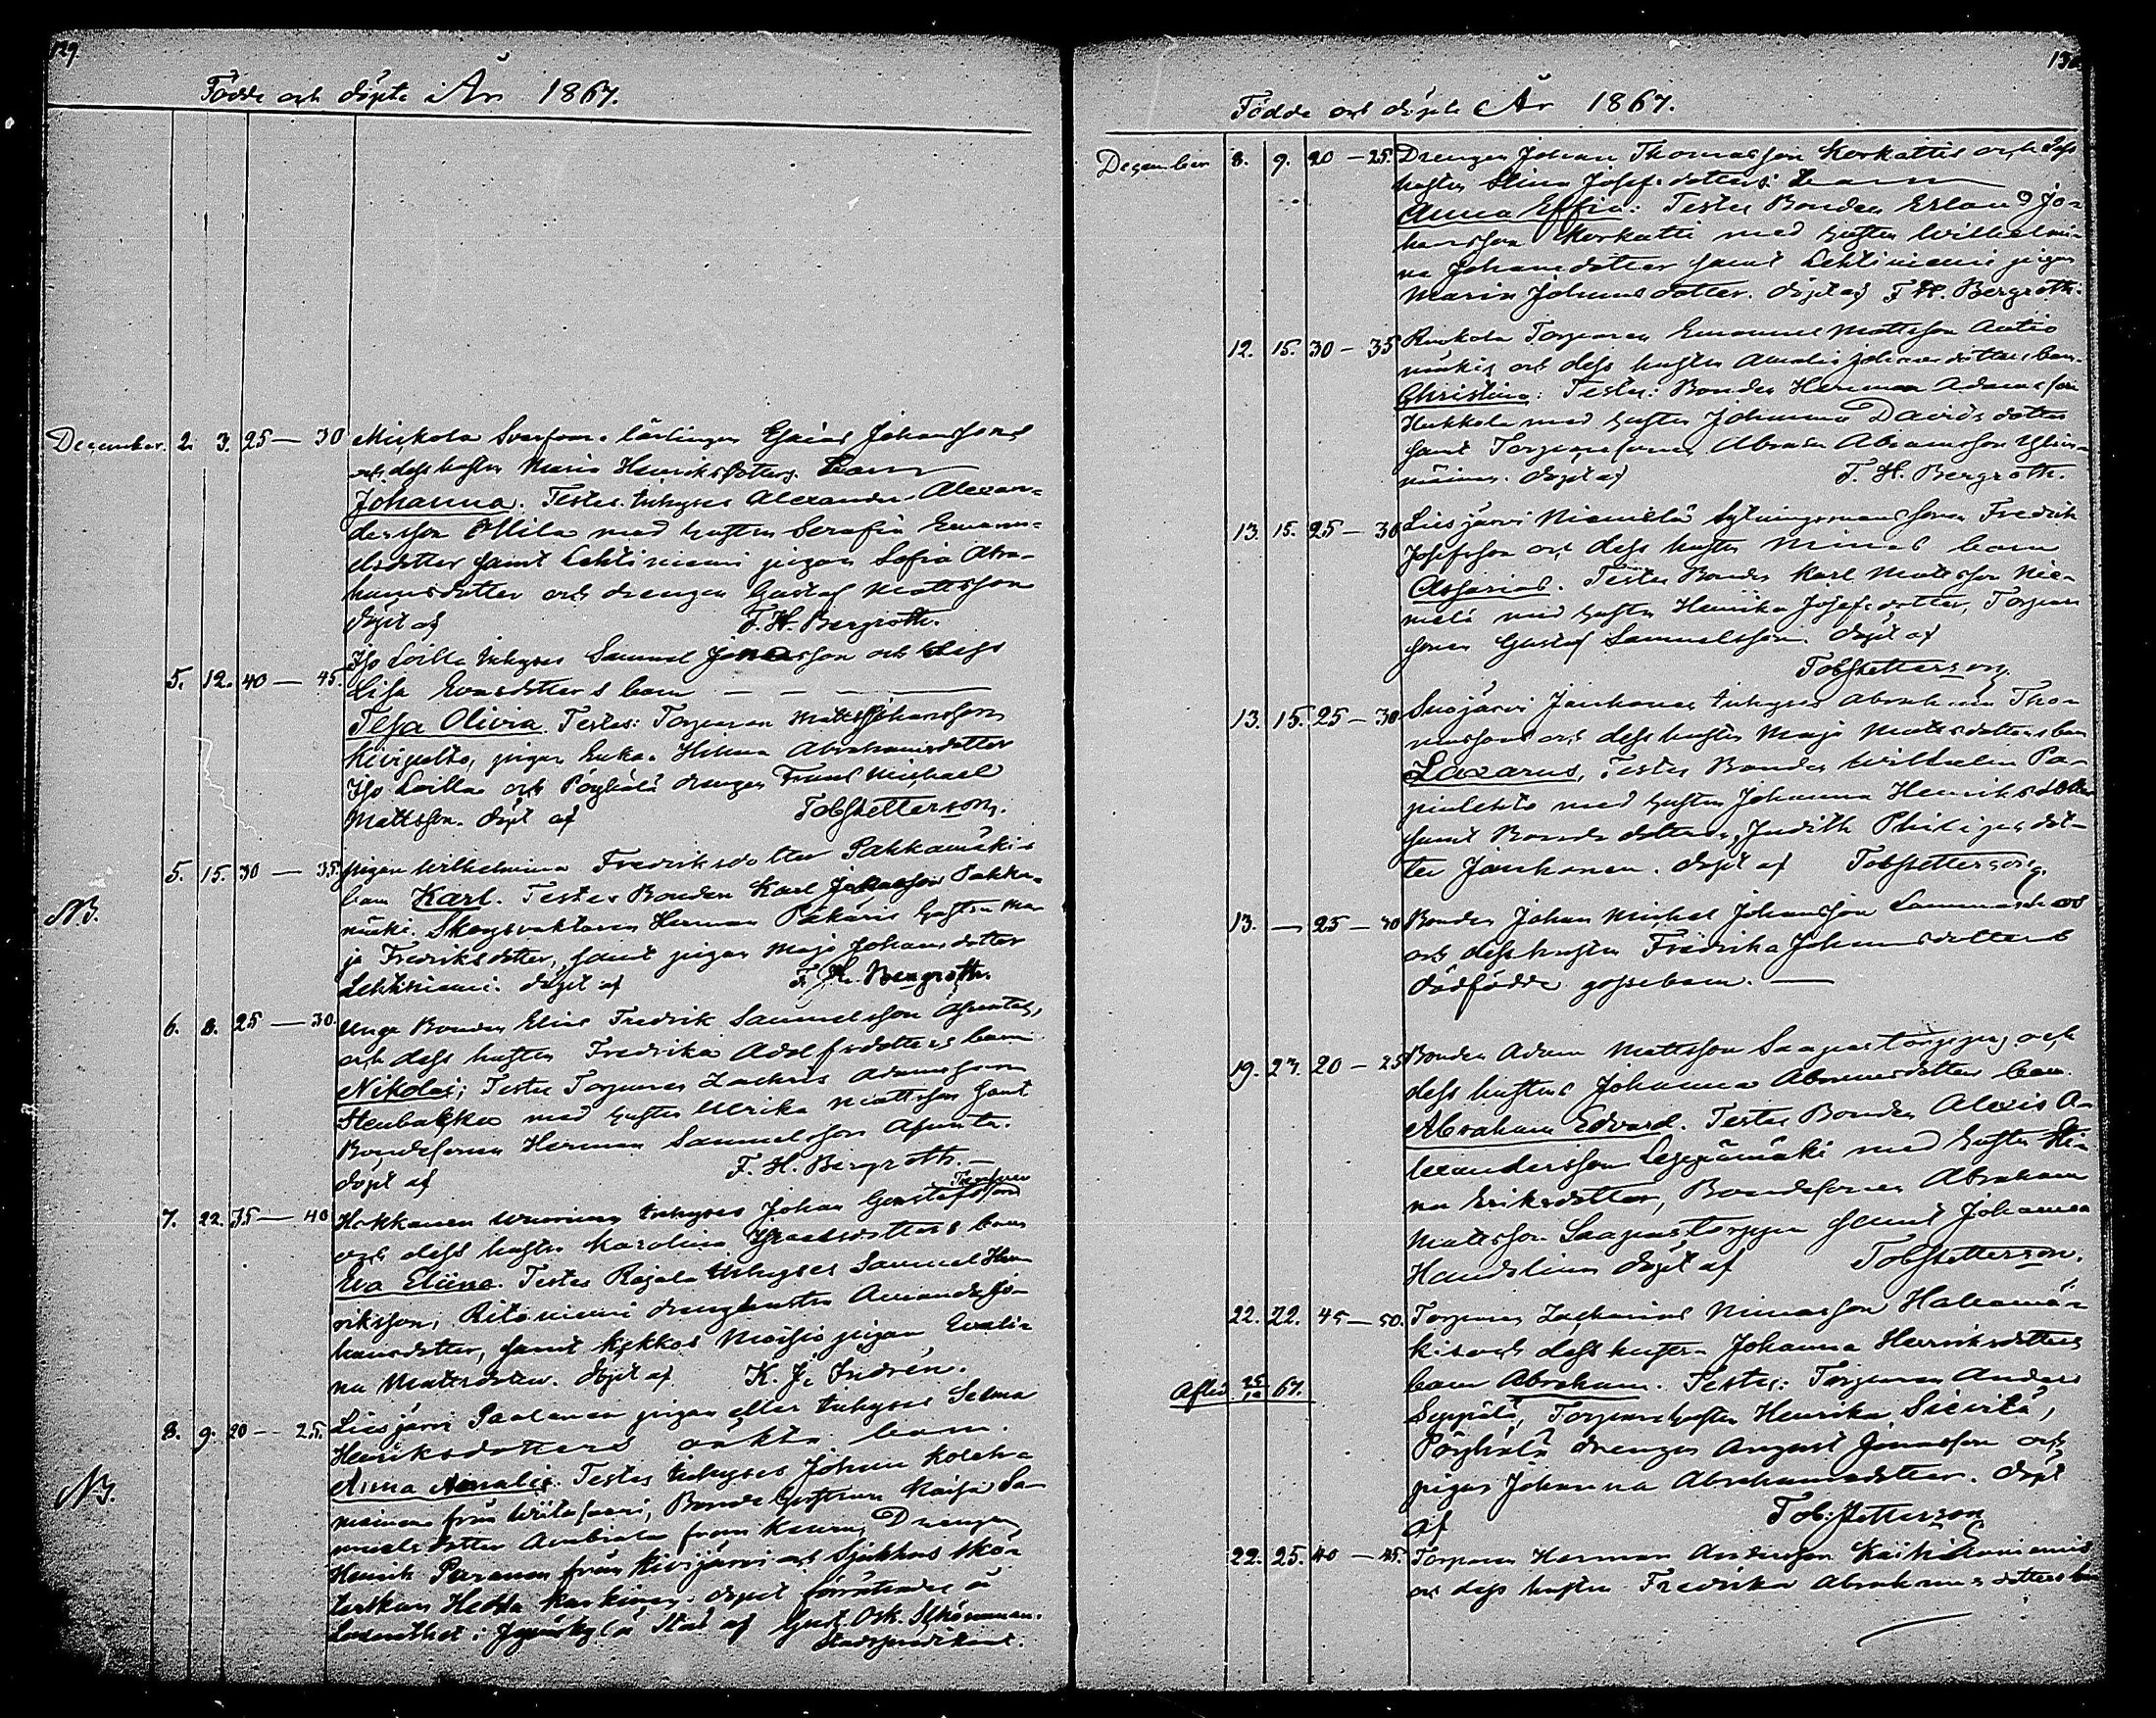 129.
Födde och döpte i År 1867.
December. 2. 3. 25 — 30 Mickola Svarfvare lärlingen Esaias Johanssons
och dess hustru Maria Henriksdotters barn
Johanna. Testes. Inhyses Alexander Alexan-
dersson Ollila med hustru Serafia Emanu-
elsdotter samt Lehtiniemi pigan Sofia Abra-
hamsdotter och drengen Gustaf Mattsson
döpt af F. H. Bergroth.
5. 12. 40 — 45. Iso Loilla Inhyses Samuel Jonasson och dess
Lisa Evasdotters barn — — —
Tesa Olivia. Testes: Torparen Matts Johansson
Kivipelto, pigan Enka. Helena Abrahamsdotter
Iso Loilla och Pöyhölä drengen Frans Michael
Mattsson. döpt af Tobs Petterson.
5. 15. 30 — 35. pigan Wilhelmina Fredriksdotter Pakkamäkis
NB. barn Karl. Testes Bonden Karl Pakka-
mäki. Skogsvaktaren Herman hustru Ma-
ja Fredriksdotter, samt pigan Maja Johansdotter
Lehtiniemi. döpt af F. H. Bergroth.
6. 8. 25 — 30. Unge Bonden Elias Fredrik Samuelsson Afuntas,
och dess hustru Fredrika Adolfsdotters barn
Nikolai; Testes Torparen Zachris Adamsson
Stenbacka med hustru Ulrika Mattsson samt
Bondesonen Herman Samuelsson Afunta.
döpt af F. H. Bergroth. —
7. 22. 35 — 40 Hakkanen inhyses Johan Gustafsson
och dess hustru Karolina Israelsdotters barn
Eva Eliina. Testes Rajala Inhyses Samuel Hen-
riksson, Ritoniemi drenghustru Amanda Jo-
hansdotter, samt Kekkos Moisio pigan Eveli-
na Mattsdotter. döpt af K. J. Indrén.
8. 9. 20 — 25. Liesjärvi Paalanen pigan eller Inhyses Selma
Henriksdotters oäkta barn.
NB. Anna Amalia. Testes Inhyses Johan
mainen från Wiitasaari, Bonde hustrun Maija Sa-
muelsdotter Ambrola från Keuru, Drengen
Henrik Paranen från Kivijärvi och Sjukhus skö-
terskan Hedda Karkinen. döpt förrättades å
Lasarettet i Jyväskylä Stad af Gust. Osk. Schöneman.
Stadspredikant.
130
Födde och döpte År 1867.
December 8. 9. 20 — 25. Drengen Johan Thomasson Korkattis och dess
hustru Stina Josefsdotters barn
Anna Effia: Testes Bonden Erland Jo-
hansson Korkatti med hustru Wilhelmi-
na Johansdotter samt Lehtiniemi pigan
Maria Johansdotter. döpt af F. H. Bergroth.
12. 15. 30 — 35 Ruokola Torparen Emanuel Mattsson Autio
mäkis och dess hustru Amalia Johansdotters barn.
Christina: Testes. Bonden Herman Adamsson
Hukkola med hustru Johanna Davidsdotter
samt Torparesonen Abram Abramsson
döpt af F. H. Bergroth.
13. 15. 25 — 30 Liesjärvi Niemelä Sytningsmans sonen Fredrik
Josefsson och dess hustru Minas barn
Assarias. Testes Bonden Karl Mattsson Nie-
melä med hustru Henrika Josefsdotter, Torpare
sonen Gustaf Samuelsson. döpt af
Tobs Petterson.
13. 15. 25 — 30 Suojärvi Jauhonen Inhyses Abraham Tho-
massons och dess hustru Maja Mattsdotters barn
Lazarus, Testes Bonden Wilhelm Pa-
pinlehto med hustru Johanna Henriksdotter
samt Bondedottern, Judith Philipsdot-
ter Jauhonen. döpt af Tobs Petterson.
13. — 25 — 30 Bonden Johan Michel Johansson
och dess hustru Fredrika Johansdotters
dödfödde gossebarn. —
19. 27. 20 — 25 Bonden Adam Mattsson Saapastorppas och
dess hustrus Johanna Abramsdotters barn.
Abraham Edvard. Testes Bonden Alexis A-
lexandersson Leppämäki med hustru Hi-
na Eriksdotter, Bondesonen Abraham
Mattsson Saapastorppa samt Johanna
Handolin döpt af Tobs Petterson.
22. 22. 45 — 50. Torparen Zacharias Ninasson Hallamä-
kis och dess hustru Johanna Henriksdotters
Afled 25/12 67. barn Abraham. Testes: Torparen Anders
Seppälä, Torparehustru Henrika Sivilä,
Pöyhölä drengen August Jonasson och
pigan Johanna Abrahamsdotter. döpt
af Tob: Petterson
22. 25. 40 — 45. Torparen Herman Andersson
och dess hustru Fredrika Abrahamsdotters barn